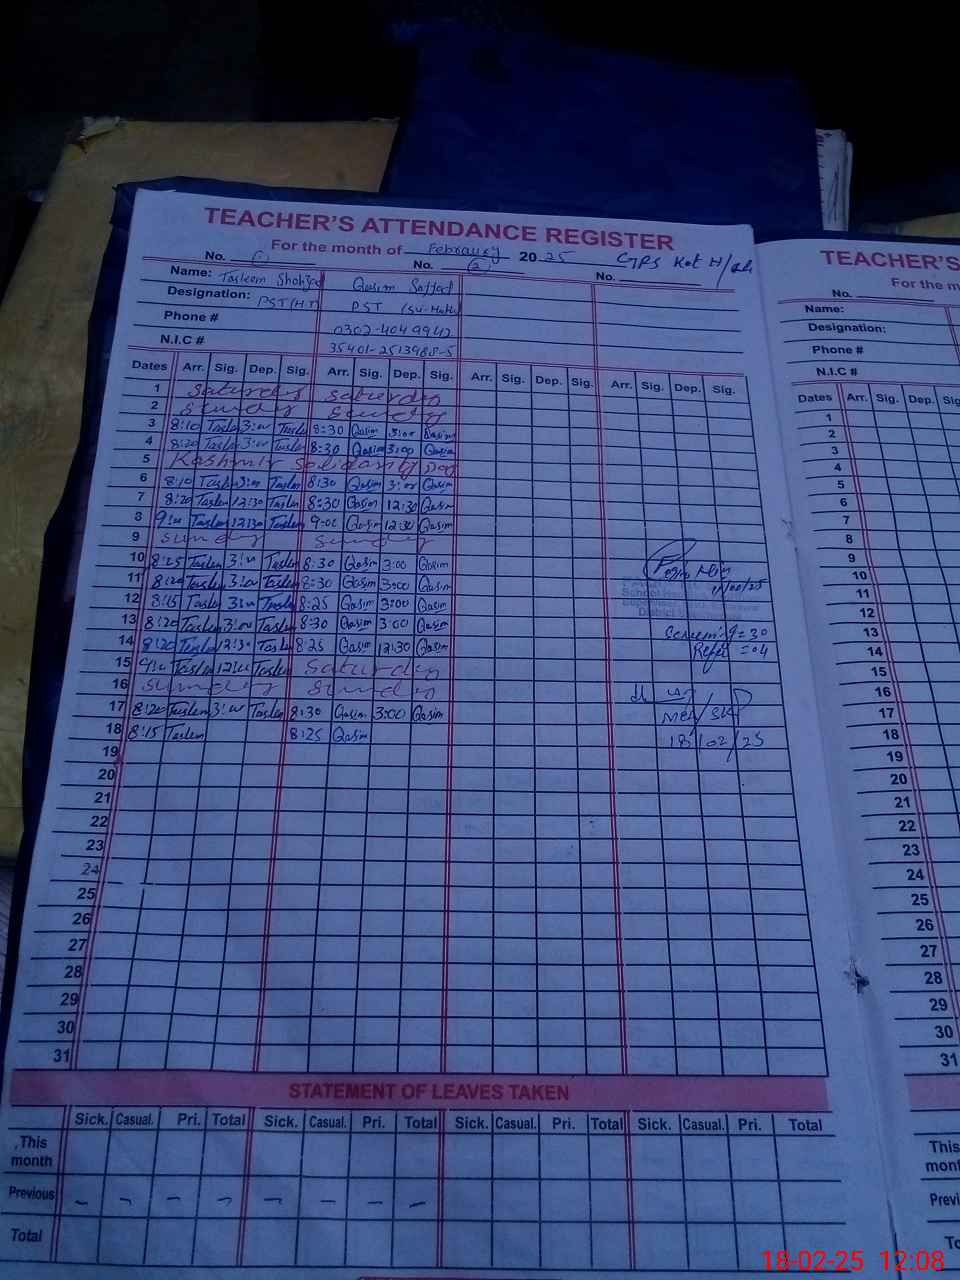 TEACHER'S ATTENDANCE REGISTER
For the month of February 2025 GPS Kot H/
No. 1 No. 2 No.
Name: Tasleem Shahzad Qasim Sajjad
Designation: PST(HT) PST
Phone # 0302-4049942
N.I.C # 35401-2513988-5
Dates Arr. Sig. Dep. Sig. Arr. Sig. Dep. Sig. Arr. Sig. Dep. Sig. Arr. Sig. Dep. Sig.
1 Saturday Saturday
2 Sunday Sunday
3 8:10 Taslem 3:00 Taslem 8:30 Qasim 3:00 Qasim
4 8:20 Taslem 3:00 Taslem 8:30 Qasim 3:00 Qasim
5 Kashmir Solidarity Day
6 8:10 Taslem 3:00 Taslem 8:30 Qasim 3:00 Qasim
7 8:20 Taslem 12:30 Taslem 8:30 Qasim 12:30 Qasim
8 9:00 Taslem 12:30 Taslem 9:00 Qasim 12:30 Qasim
9 Sunday Sunday
10 8:25 Taslem 3:00 Taslem 8:30 Qasim 3:00 Qasim
11 8:20 Taslem 3:00 Taslem 8:30 Qasim 3:00 Qasim
12 8:15 Taslem 3:00 Taslem 8:25 Qasim 3:00 Qasim
13 8:20 Taslem 3:00 Taslem 8:30 Qasim 3:00 Qasim
14 8:20 Taslem 12:30 Taslem 8:25 Qasim 12:30 Qasim
15 9:00 Taslem 12:00 Taslem Saturday
16 Sunday Sunday
17 8:20 Taslem 3:00 Taslem 8:30 Qasim 3:00 Qasim
18 8:15 Taslem 8:25 Qasim
19
20
21
22
23
24
25
26
27
28
29
30
31
School Health
District
Screening = 30
Refer = 04
18/02/25
STATEMENT OF LEAVES TAKEN
Sick. Casual. Pri. Total Sick. Casual. Pri. Total Sick. Casual. Pri. Total Sick. Casual. Pri. Total
This month
Previous – – – – – – – –
Total
TEACHER'S
For the m
No.
Name:
Designation:
Phone #
N.I.C #
Dates Arr. Sig. Dep. Sig
1
2
3
4
5
6
7
8
9
10
11
12
13
14
15
16
17
18
19
20
21
22
23
24
25
26
27
28
29
30
31
This
mont
Previ
To
18-02-25 12:08